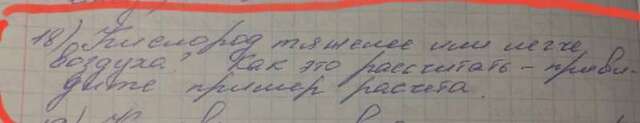 18) Кислород тяжелее или легче
воздуха? Как это рассчитать – приве-
дите пример расчета.